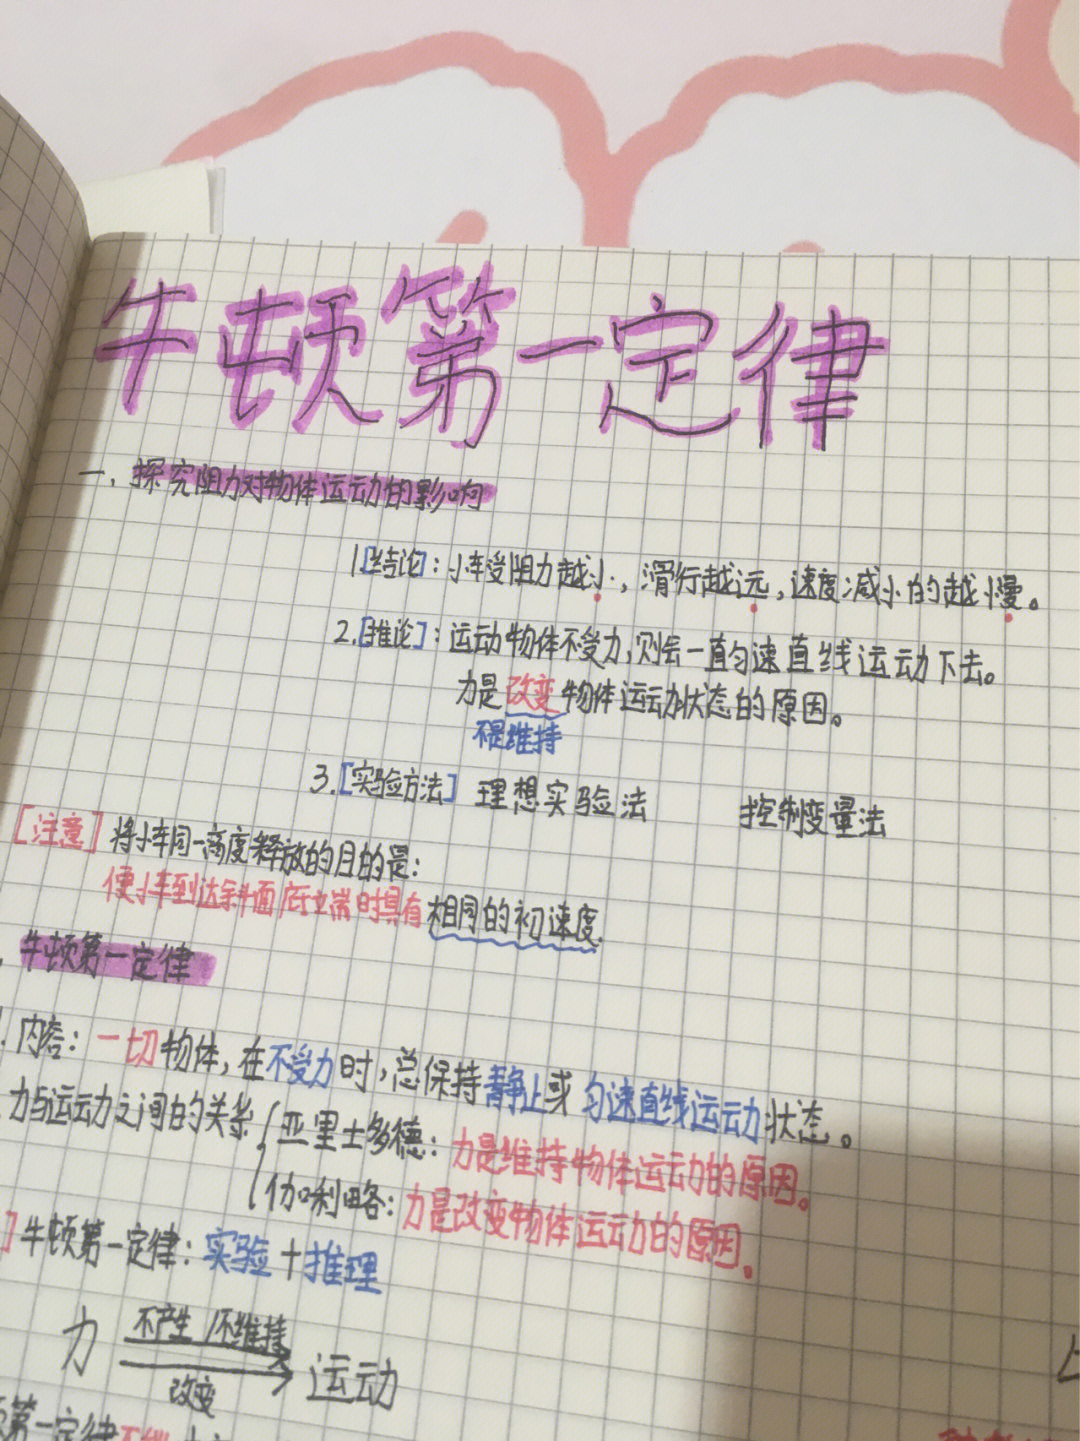 牛顿第一定律
一、探究阻力对物体运动的影响
1.[结论]：小车受阻力越小，滑行越远，速度减小的越慢。
2.[推论]：运动物体不受力，则会一直匀速直线运动下去。
力是改变物体运动状态的原因。
不是维持
3.[实验方法] 理想实验法 控制变量法
[注意] 将小车同一高度释放的目的是：
使小车到达斜面底端时具有相同的初速度.
牛顿第一定律
1. 内容：一切物体，在不受力时，总保持静止或匀速直线运动状态。
力与运动之间的关系 { 亚里士多德：力是维持物体运动的原因。
伽利略：力是改变物体运动的原因。
] 牛顿第一定律：实验+推理
不产生/不维持
力 运动
改变
第一定律不能